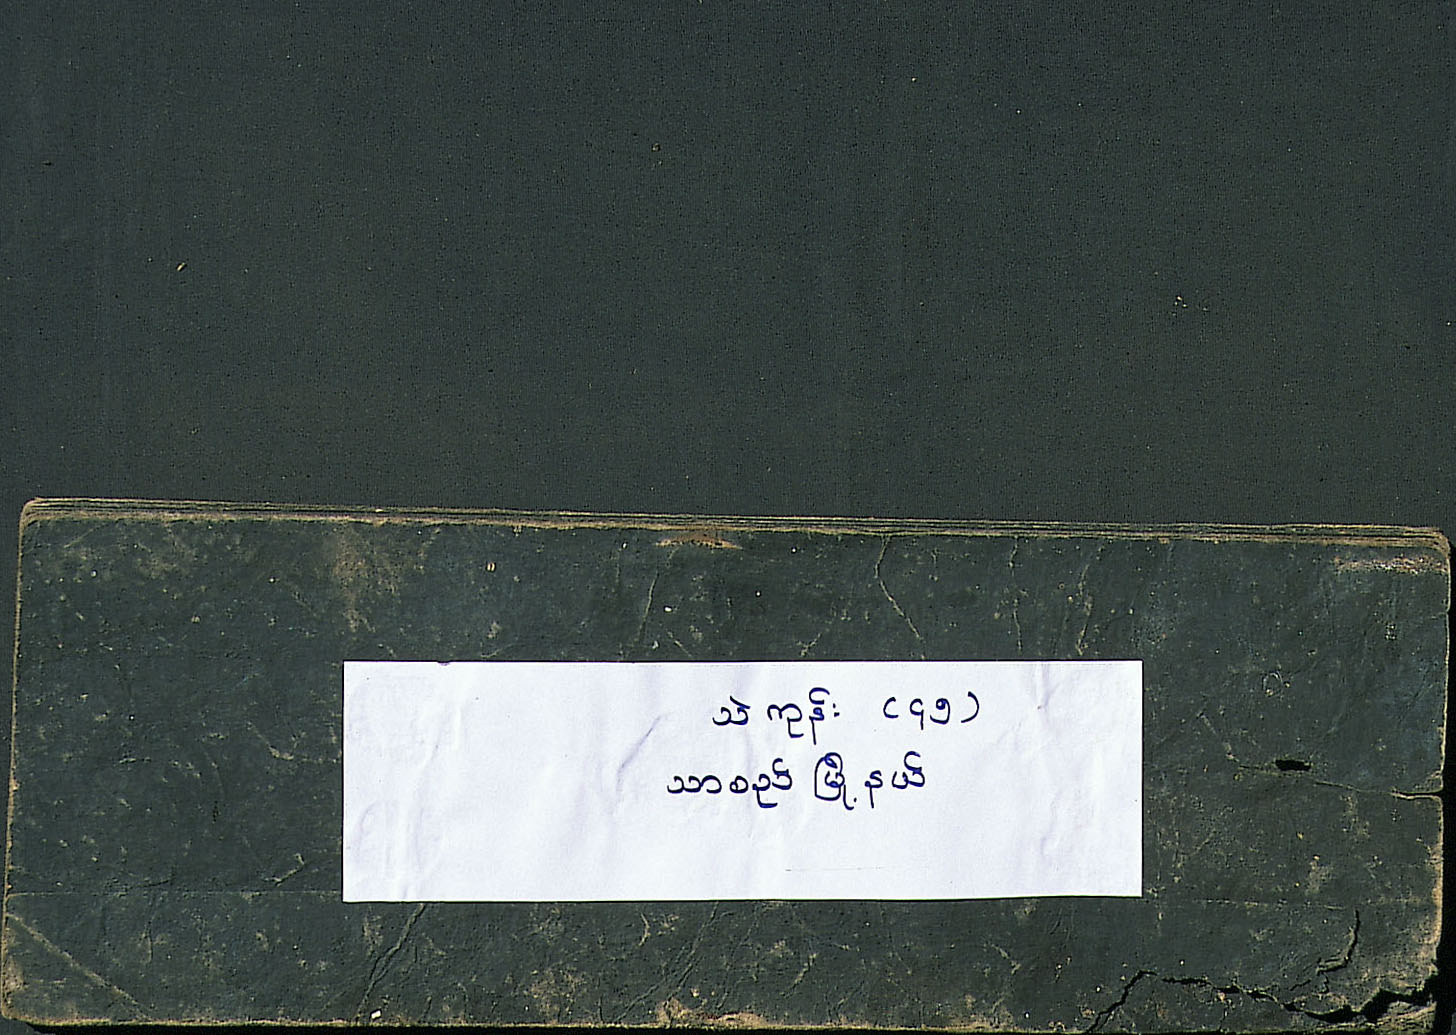 သဲ ကုန်း (၄၅)
သာစည် မြို့နယ်